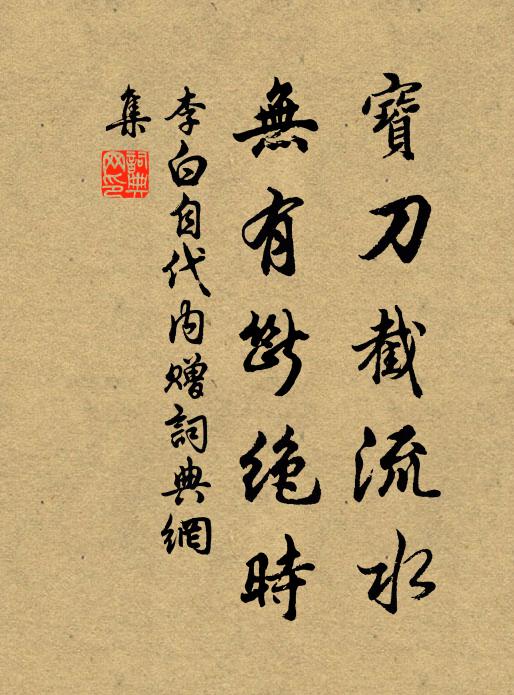 寶刀截流水
無有斷絶時
李白自代内贈詞典網
集
詞典
网印